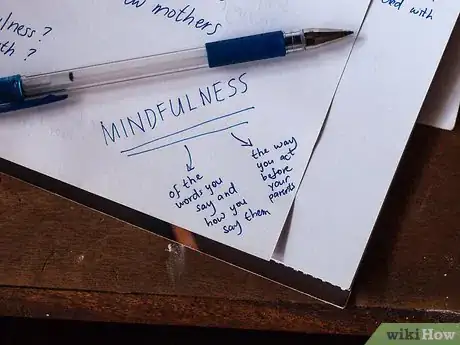 lness?
th?
w mothers
ed with
MINDFULNESS
of the
words you
say and
how you
say them
the way
you act
before
your
parents
wikiHow